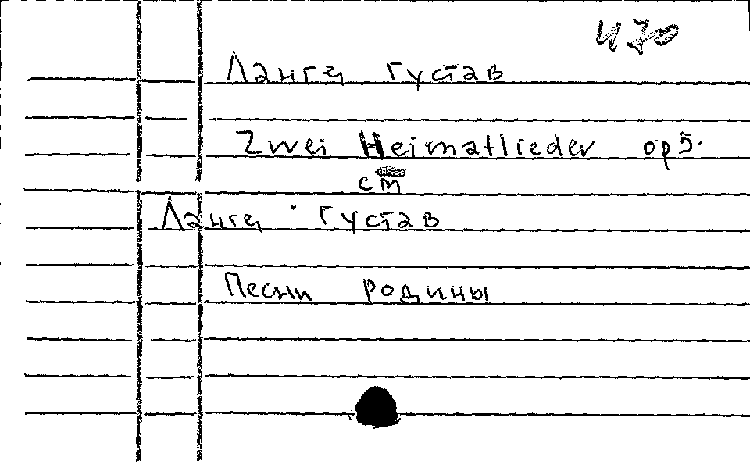 470
Ланге Густав
Zwei Heimatlieder op5.
ст
Ланге Густав
Песни родины